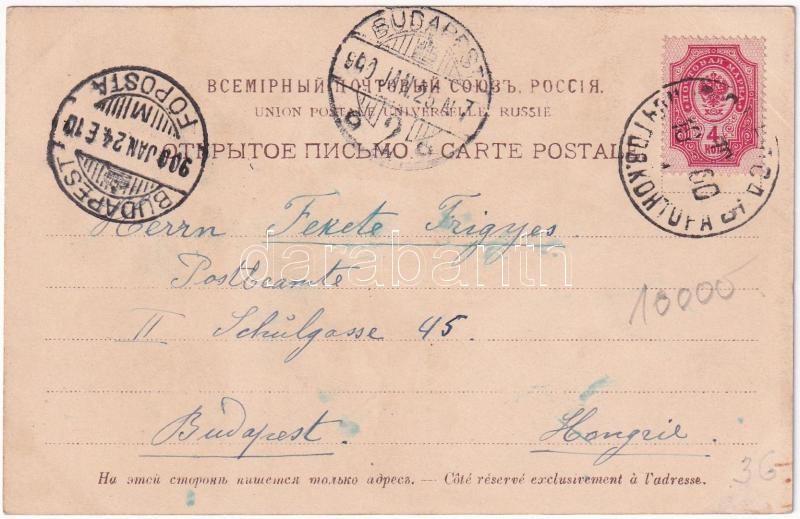 BUDAPEST
900 JAN. 25. N. 7
ВСЕМІРНЫЙ ПОЧТОВЫЙ СОЮЗЪ. РОССІЯ.
UNION POSTALE UNIVERSELLE. RUSSIE
ОТКРЫТОЕ ПИСЬМО. — CARTE POSTALE
ПОЧТОВАЯ МАРКА
4
КОП.
ГОР. КОНТОРА
BUDAPEST 1
900 JAN 24. E 10
M
FŐPOSTA
Herrn Fekete Frigyes
darabanth
Postbeamte
II Schülgasse 45.
10000
Budapest. Hongrie.
На этой сторонѣ пишется только адресъ. — Côté réservé exclusivement à l'adresse.
36